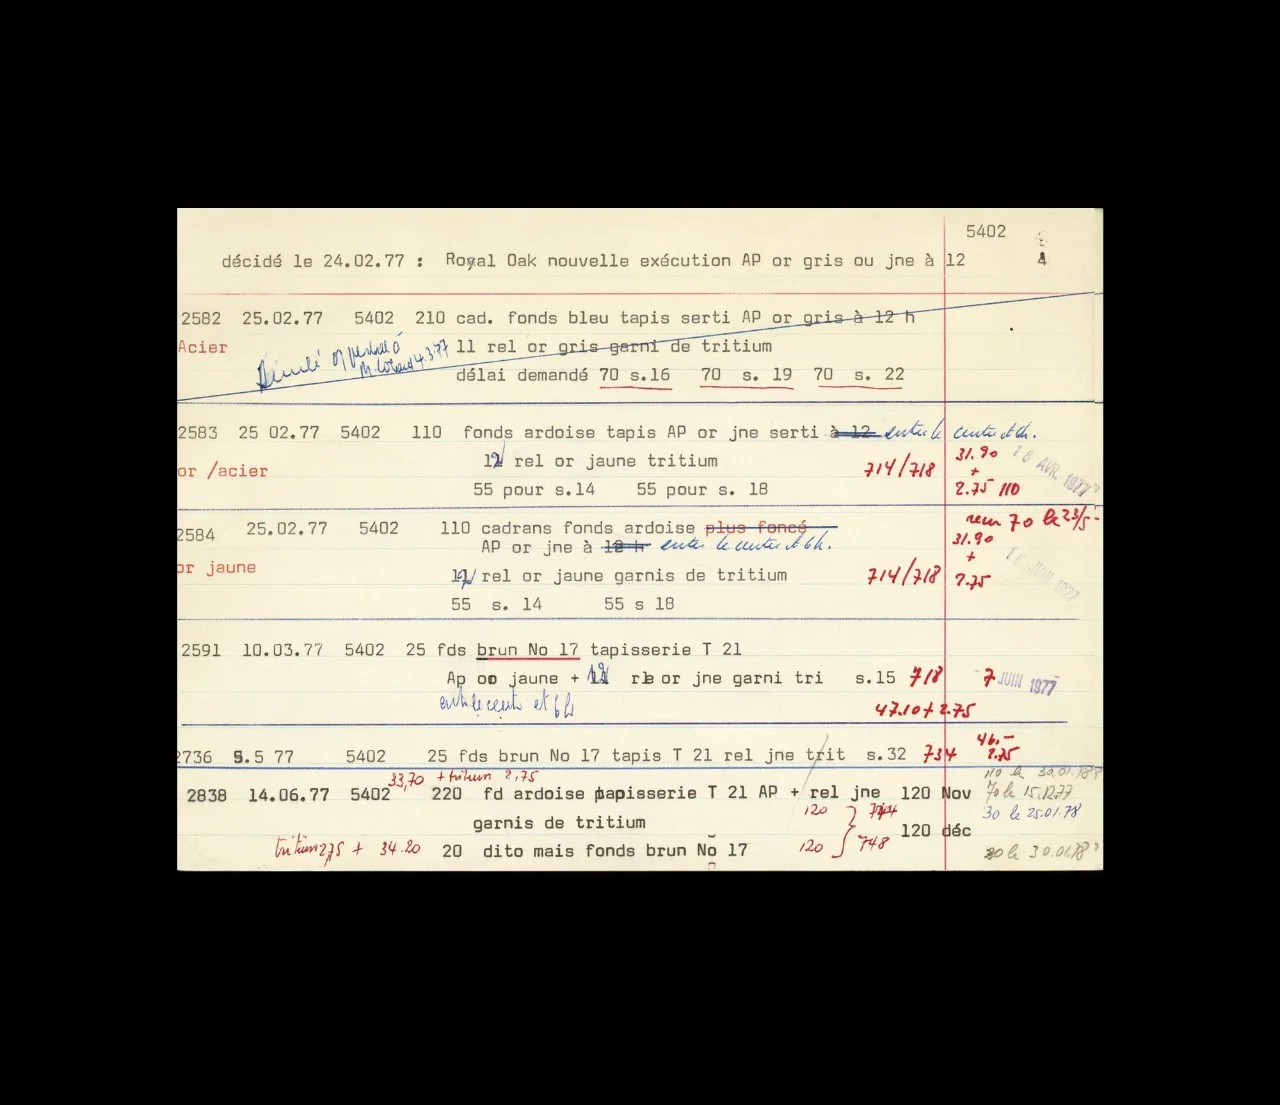 5402
décidé le 24.02.77 : Royal Oak nouvelle exécution AP or gris ou jne à 12 4
2582 25.02.77 5402 210 cad. fonds bleu tapis serti AP or gris à 12 h
Acier 11 rel or gris garni de tritium
4.3.77
délai demandé 70 s.16 70 s. 19 70 s. 22
2583 25 02.77 5402 110 fonds ardoise tapis AP or jne serti à 12 entre le centre et 6h.
or /acier 12 rel or jaune tritium 714/718 31.90 + 2.75 110 18 AVR. 1977
55 pour s.14 55 pour s. 18
2584 25.02.77 5402 110 cadrans fonds ardoise plus foncé 70 le 23/5
AP or jne à 12 h entre le centre et 6h. 31.90
or jaune rel or jaune garnis de tritium 714/718 + 2.75 JUIN 1977
55 s. 14 55 s 18
2591 10.03.77 5402 25 fds brun No 17 tapisserie T 21
Ap or jaune + 12 rel or jne garni tri s.15 718 7 JUIN 1977
entre le centre et 6h 47.10 + 2.75
2736 9.5 77 5402 25 fds brun No 17 tapis T 21 rel jne trit s.32 734 46.- 2.75
33,70 + tritium 2,75 110 le 30.01.78
2838 14.06.77 5402 220 fd ardoise papisserie T 21 AP + rel jne 120 Nov 70 le 15.12.77
garnis de tritium 120 744 30 le 25.01.78
120 déc
tritium 2,75 + 34.20 20 dito mais fonds brun No 17 120 748 20 le 30.01.78